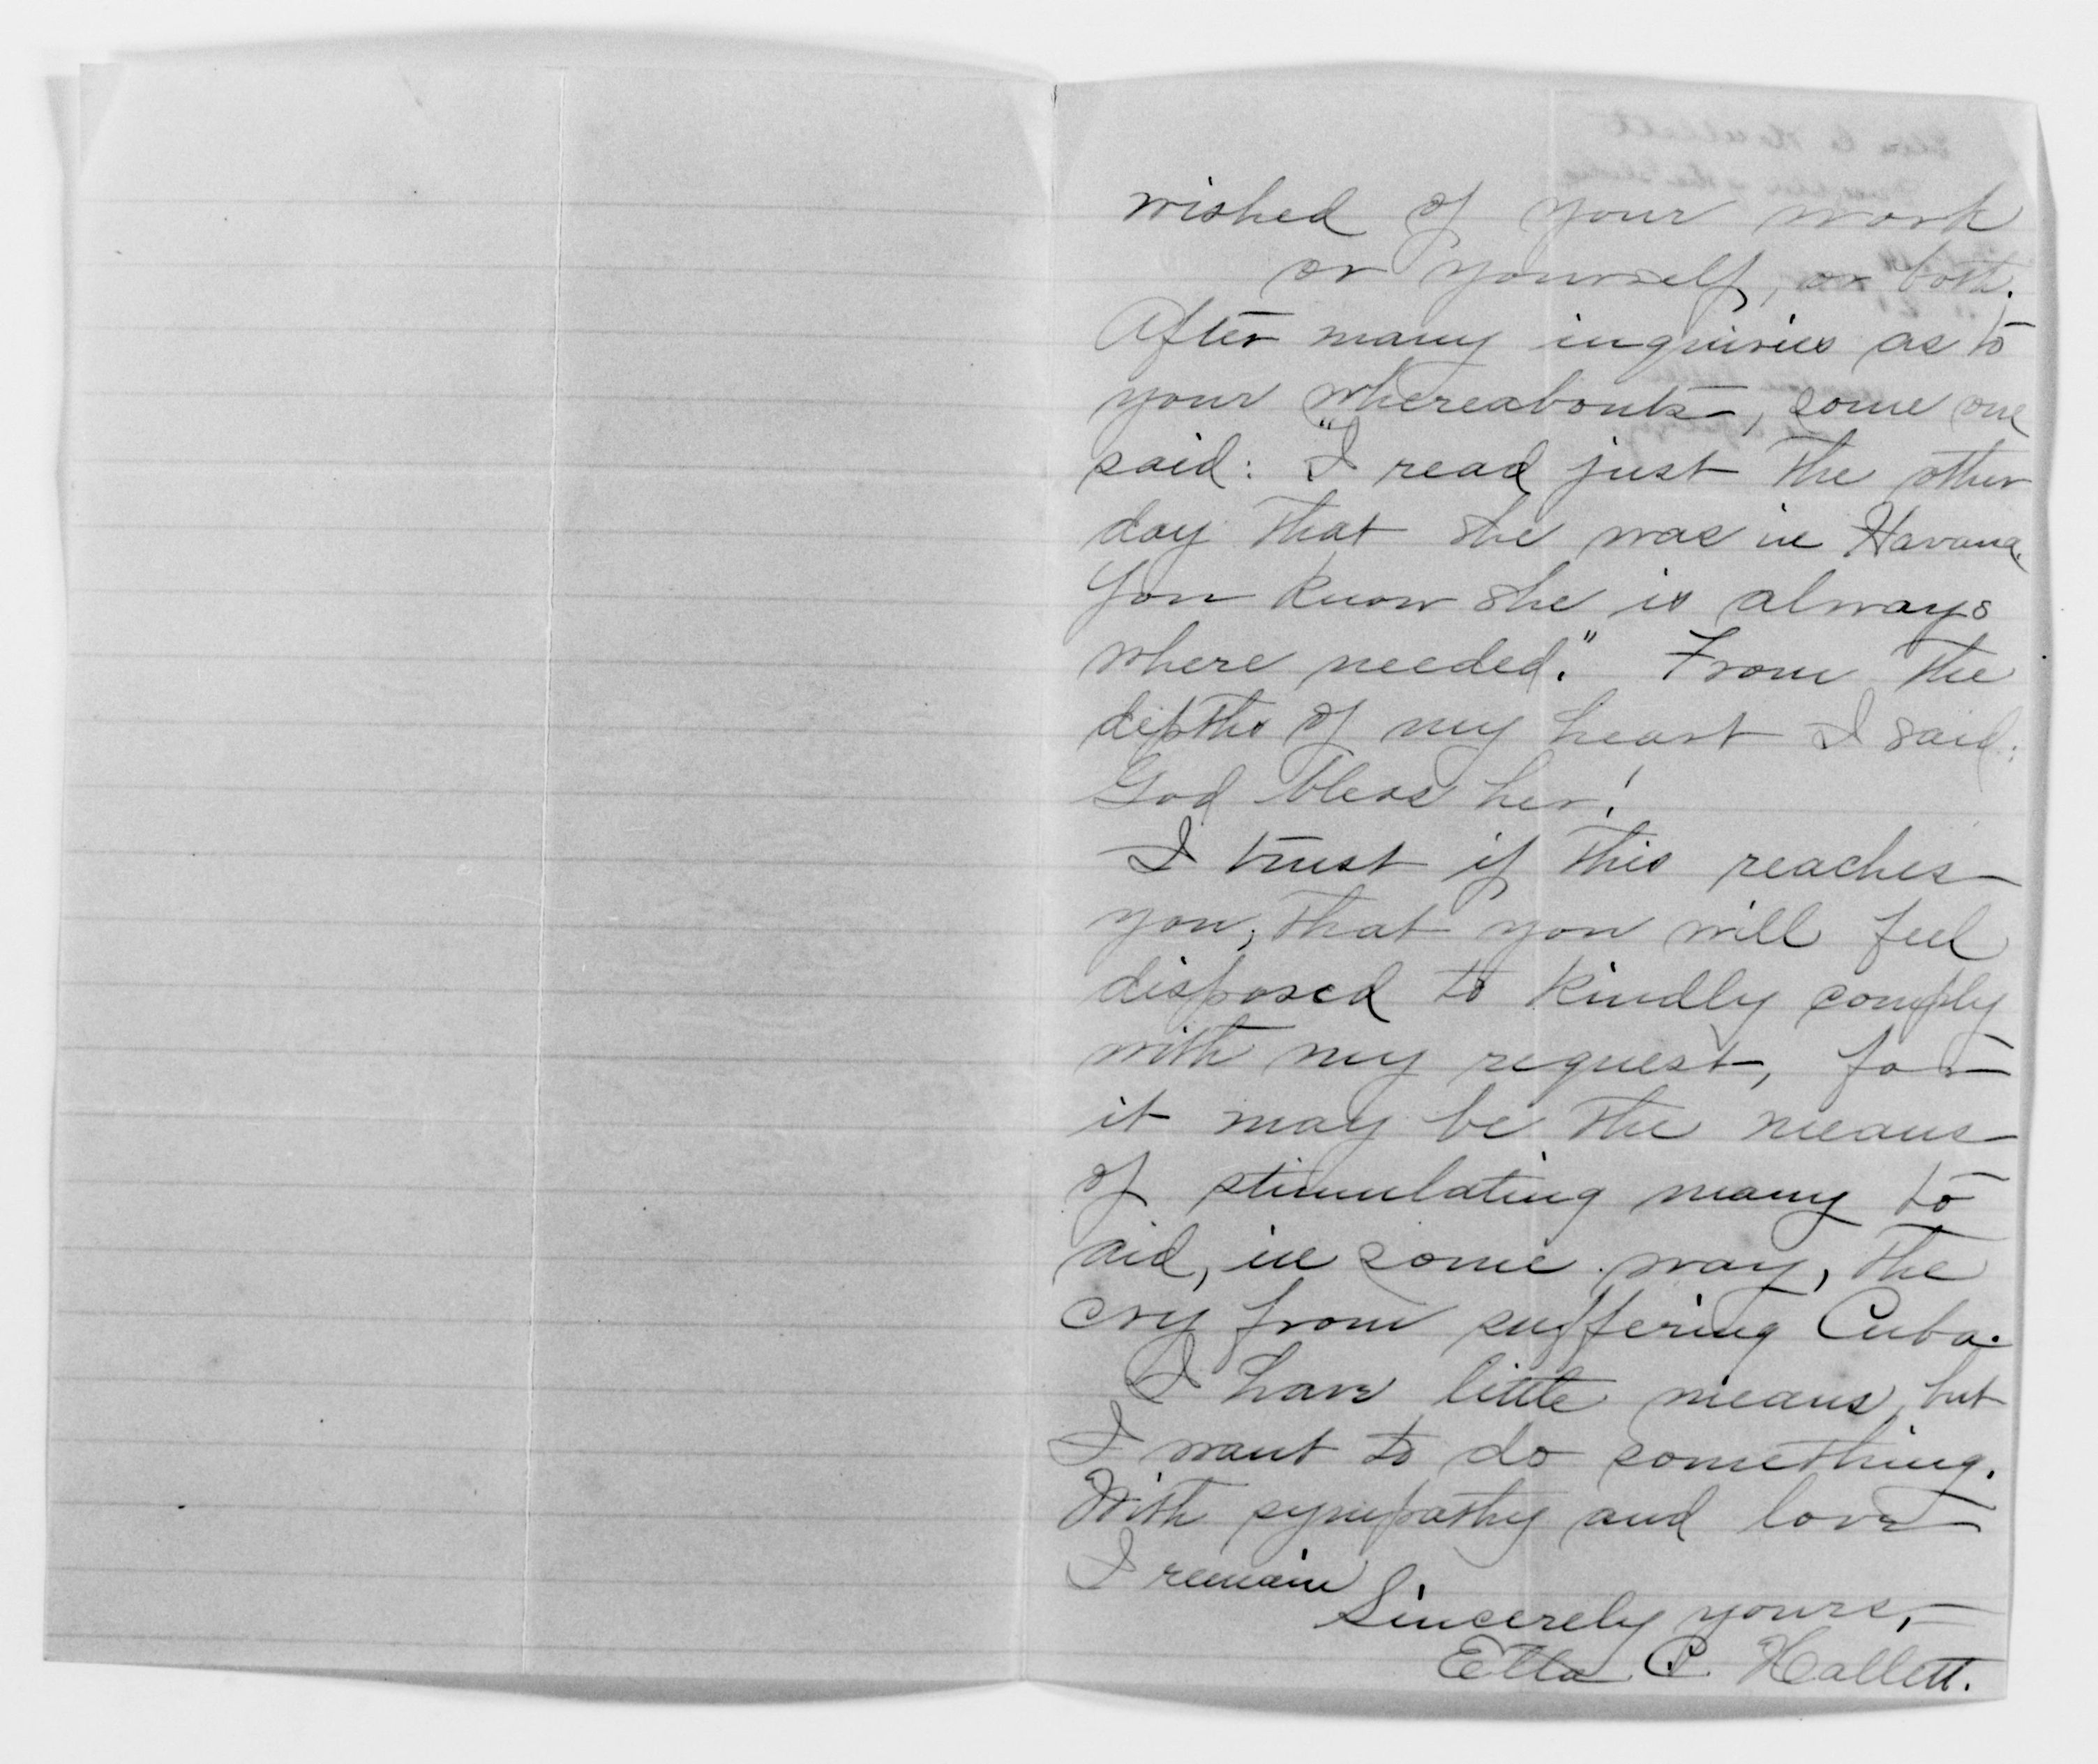 wished of your work
or yourself, or both.
After many inquiries as to
your whereabouts, some one
said: "I read just the other
day that she was in Havana.
You know she is always
where needed." From the
depths of my heart I said:
God bless her!
I trust if this reaches
you, that you will feel
disposed to kindly comply
with my request, for
it may be the means
of stimulating many to
aid, in some way, the
cry from suffering Cuba.
I have little means, but
I want to do something.
With sympathy and love
I remain
Sincerely yours,
Etta C. Hallett.